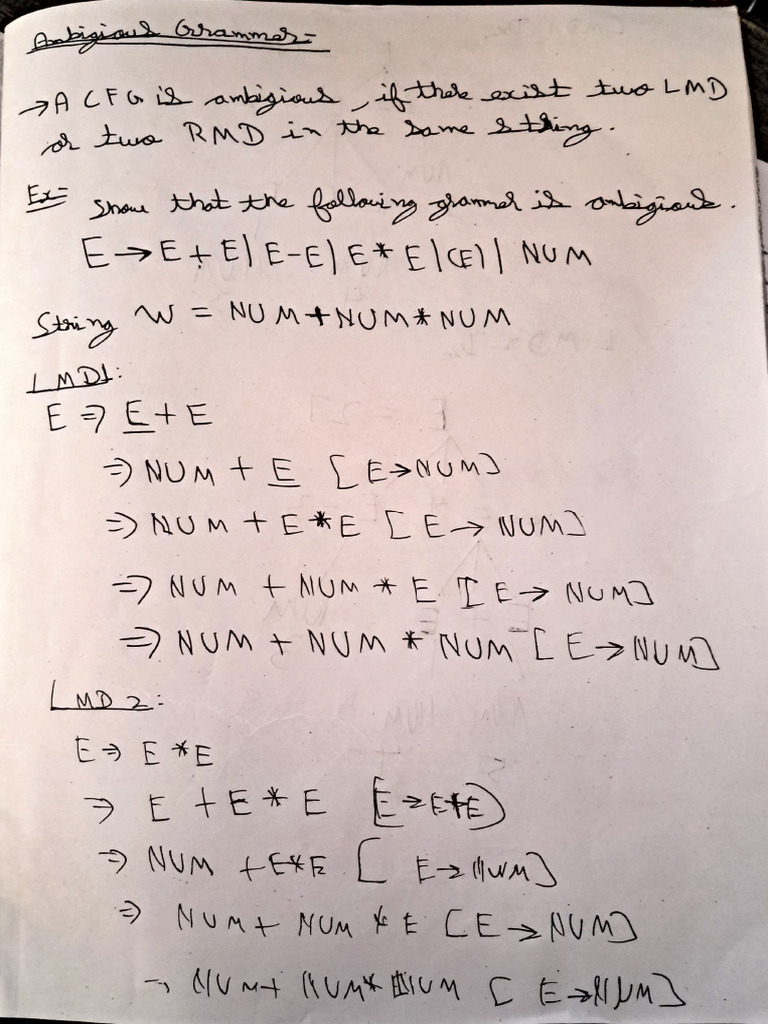 Ambigious Grammer=
→ A CFG is ambigious, if there exist two LMD
or two RMD in the same string.
Ex= Show that the following grammer is ambigious.
E → E + E | E - E | E * E | (E) | NUM
String W = NUM + NUM * NUM
LMD1:
E ⇒ E + E
⇒ NUM + E [E → NUM]
⇒ NUM + E * E [E → NUM]
⇒ NUM + NUM * E [E → NUM]
⇒ NUM + NUM * NUM [E → NUM]
LMD 2:
E ⇒ E * E
⇒ E + E * E [E → E+E]
⇒ NUM + E * E [E → NUM]
⇒ NUM + NUM * E [E → NUM]
⇒ NUM + NUM * NUM [E → NUM]